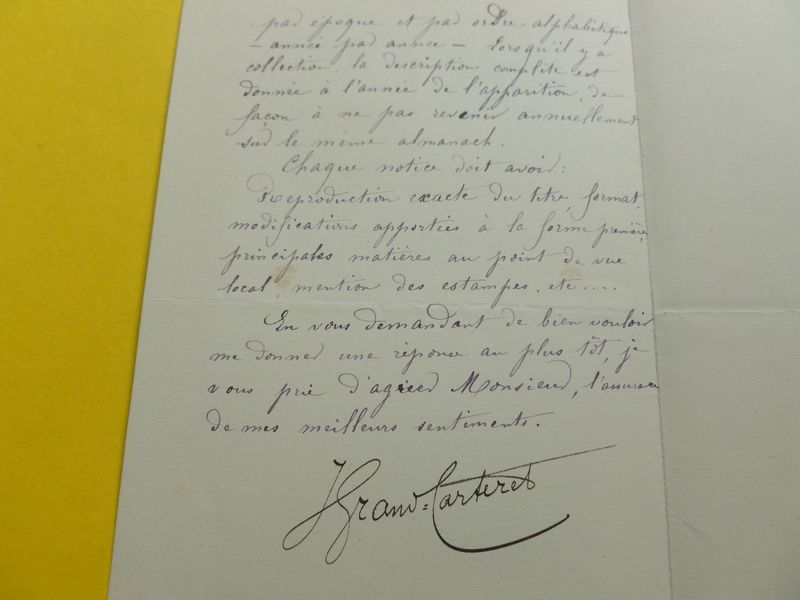 par époque et par ordre alphabétique
– année par année – Lorsqu'il y a
collection, la description complète est
donnée à l'année de l'apparition, de
façon à ne pas revenir annuellement
sur le même almanach.
Chaque notice doit avoir :
Reproduction exacte du titre, format,
modifications apportées à la forme première,
principales matières au point de vue
local, mention des estampes, etc ....
En vous demandant de bien vouloir
me donner une réponse au plus tôt, je
vous prie d'agréer Monsieur, l'assurance
de mes meilleurs sentiments.
J Grand=Carteret